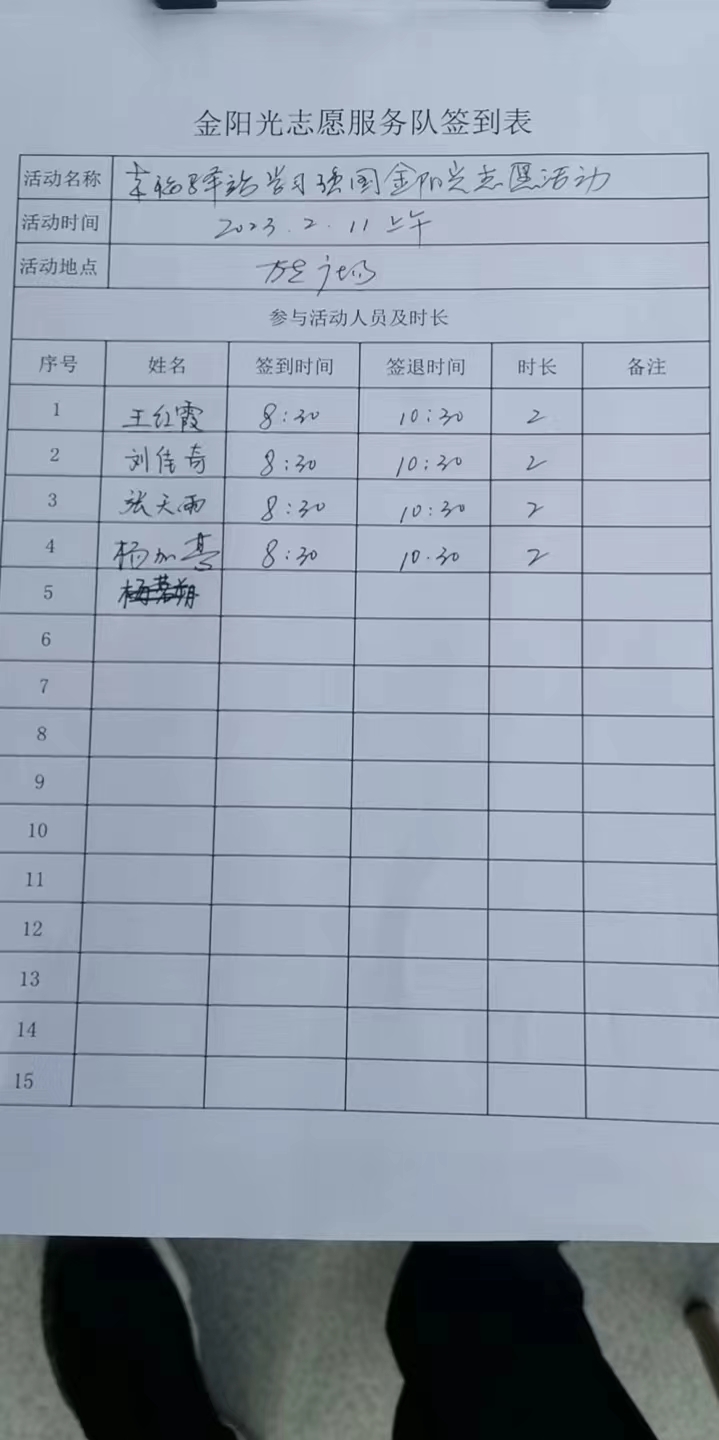 金阳光志愿服务队签到表
活动名称 幸福驿站学习强国金阳光志愿活动
活动时间 2023.2.11上午
活动地点 广场
参与活动人员及时长
序号 姓名 签到时间 签退时间 时长 备注
1 王红霞 8:30 10:30 2
2 刘佳奇 8:30 10:30 2
3 张天雨 8:30 10:30 2
4 杨加亭 8:30 10.30 2
5
6
7
8
9
10
11
12
13
14
15